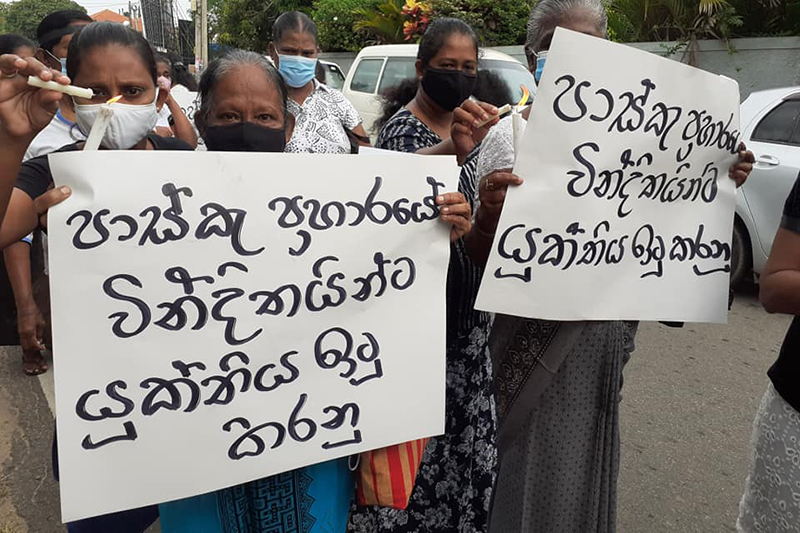 පාස්කු ප්‍රහාරයේ
වින්දිතයින්ට
යුක්තිය ඉටු
කරනු
පාස්කු ප්‍රහාරයේ
වින්දිතයින්ට
යුක්තිය ඉටු කරනු